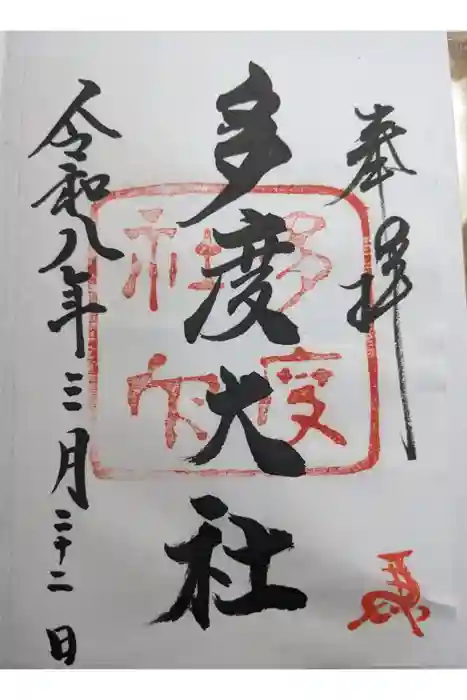 奉拝
多度大社
令和八年三月二十二日
多度
社印
馬